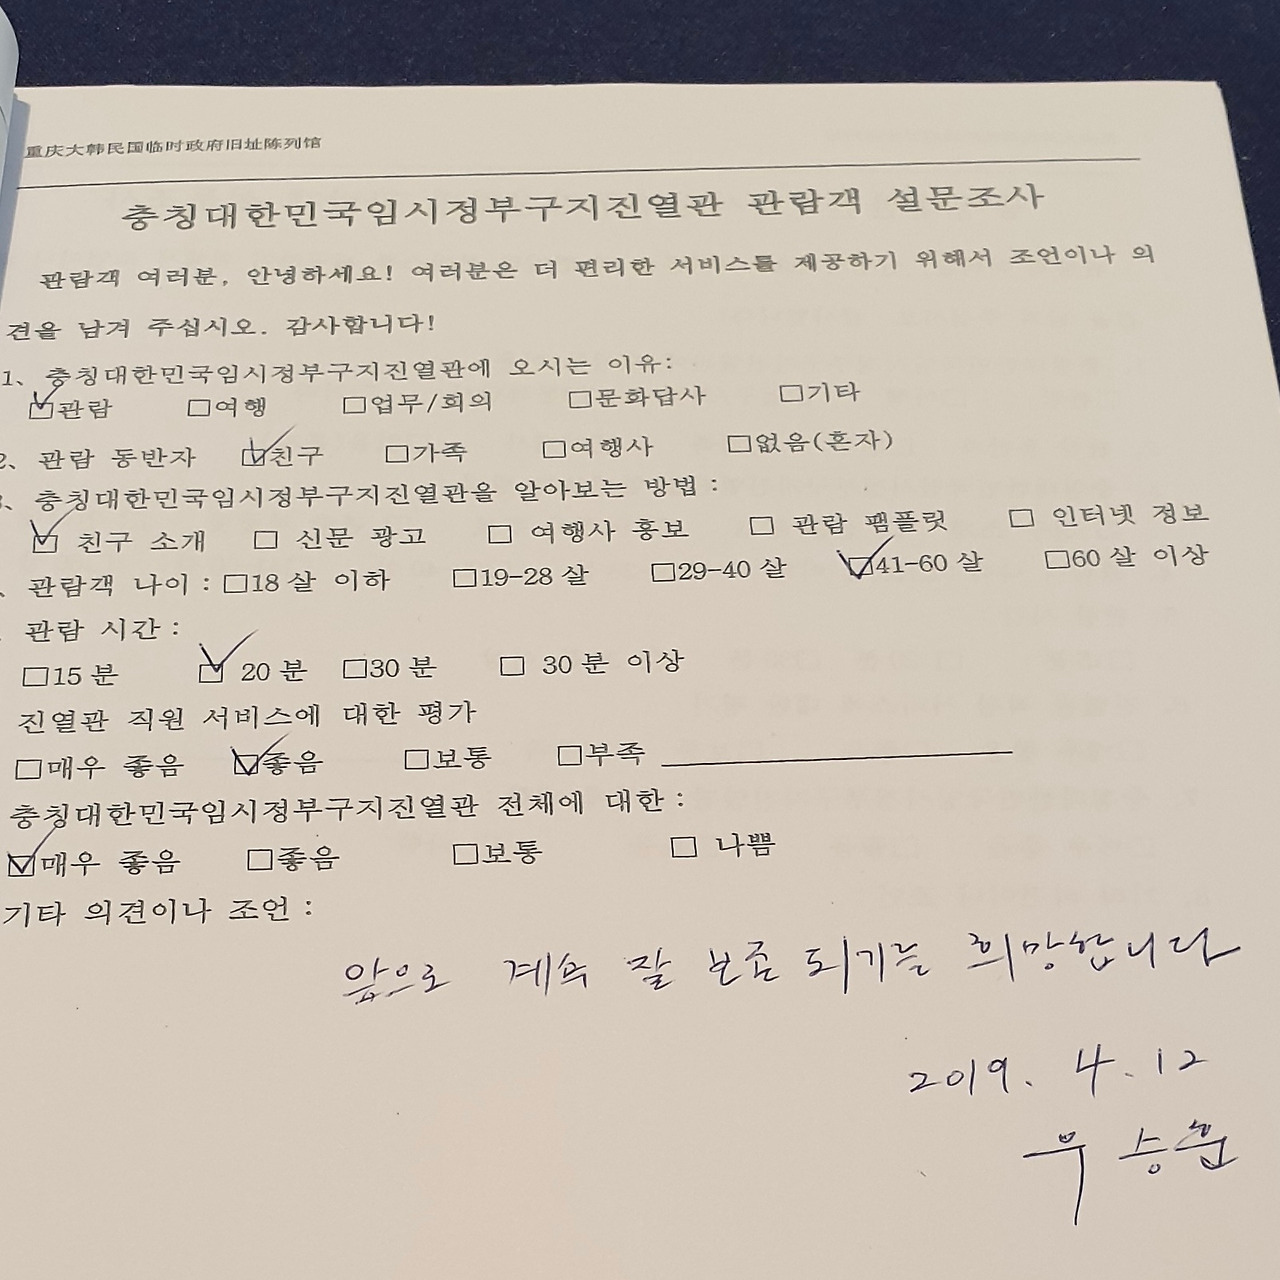 重庆大韩民国临时政府旧址陈列馆
충칭대한민국임시정부구지진열관 관람객 설문조사
관람객 여러분, 안녕하세요! 여러분은 더 편리한 서비스를 제공하기 위해서 조언이나 의
견을 남겨 주십시오. 감사합니다!
1、충칭대한민국임시정부구지진열관에 오시는 이유:
☑관람 □여행 □업무/회의 □문화답사 □기타
2、관람 동반자 ☑친구 □가족 □여행사 □없음(혼자)
3、충칭대한민국임시정부구지진열관을 알아보는 방법 :
☑ 친구 소개 □ 신문 광고 □ 여행사 홍보 □ 관람 팸플릿 □ 인터넷 정보
、관람객 나이 : □18 살 이하 □19-28 살 □29-40 살 ☑41-60 살 □60 살 이상
관람 시간 :
□15 분 ☑ 20 분 □30 분 □ 30 분 이상
진열관 직원 서비스에 대한 평가
□매우 좋음 ☑좋음 □보통 □부족
충칭대한민국임시정부구지진열관 전체에 대한 :
☑매우 좋음 □좋음 □보통 □ 나쁨
기타 의견이나 조언 :
앞으로 계속 잘 보존 되기를 희망합니다
2019. 4. 12
우승훈